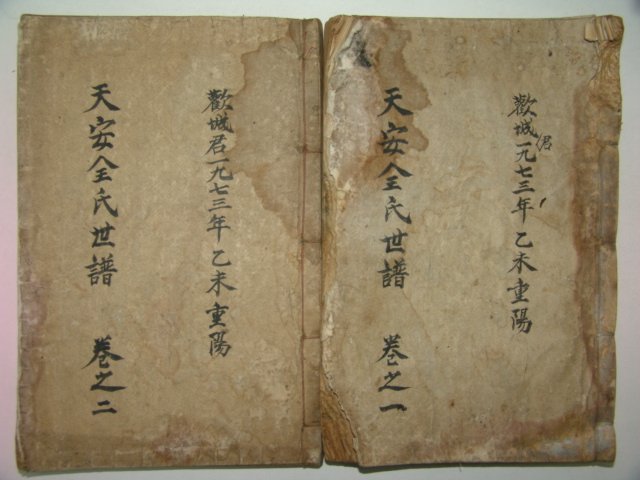 歡城君一九七三年乙未重陽
天安全氏世譜 卷之一
歡城君一九七三年乙未重陽
天安全氏世譜 卷之二